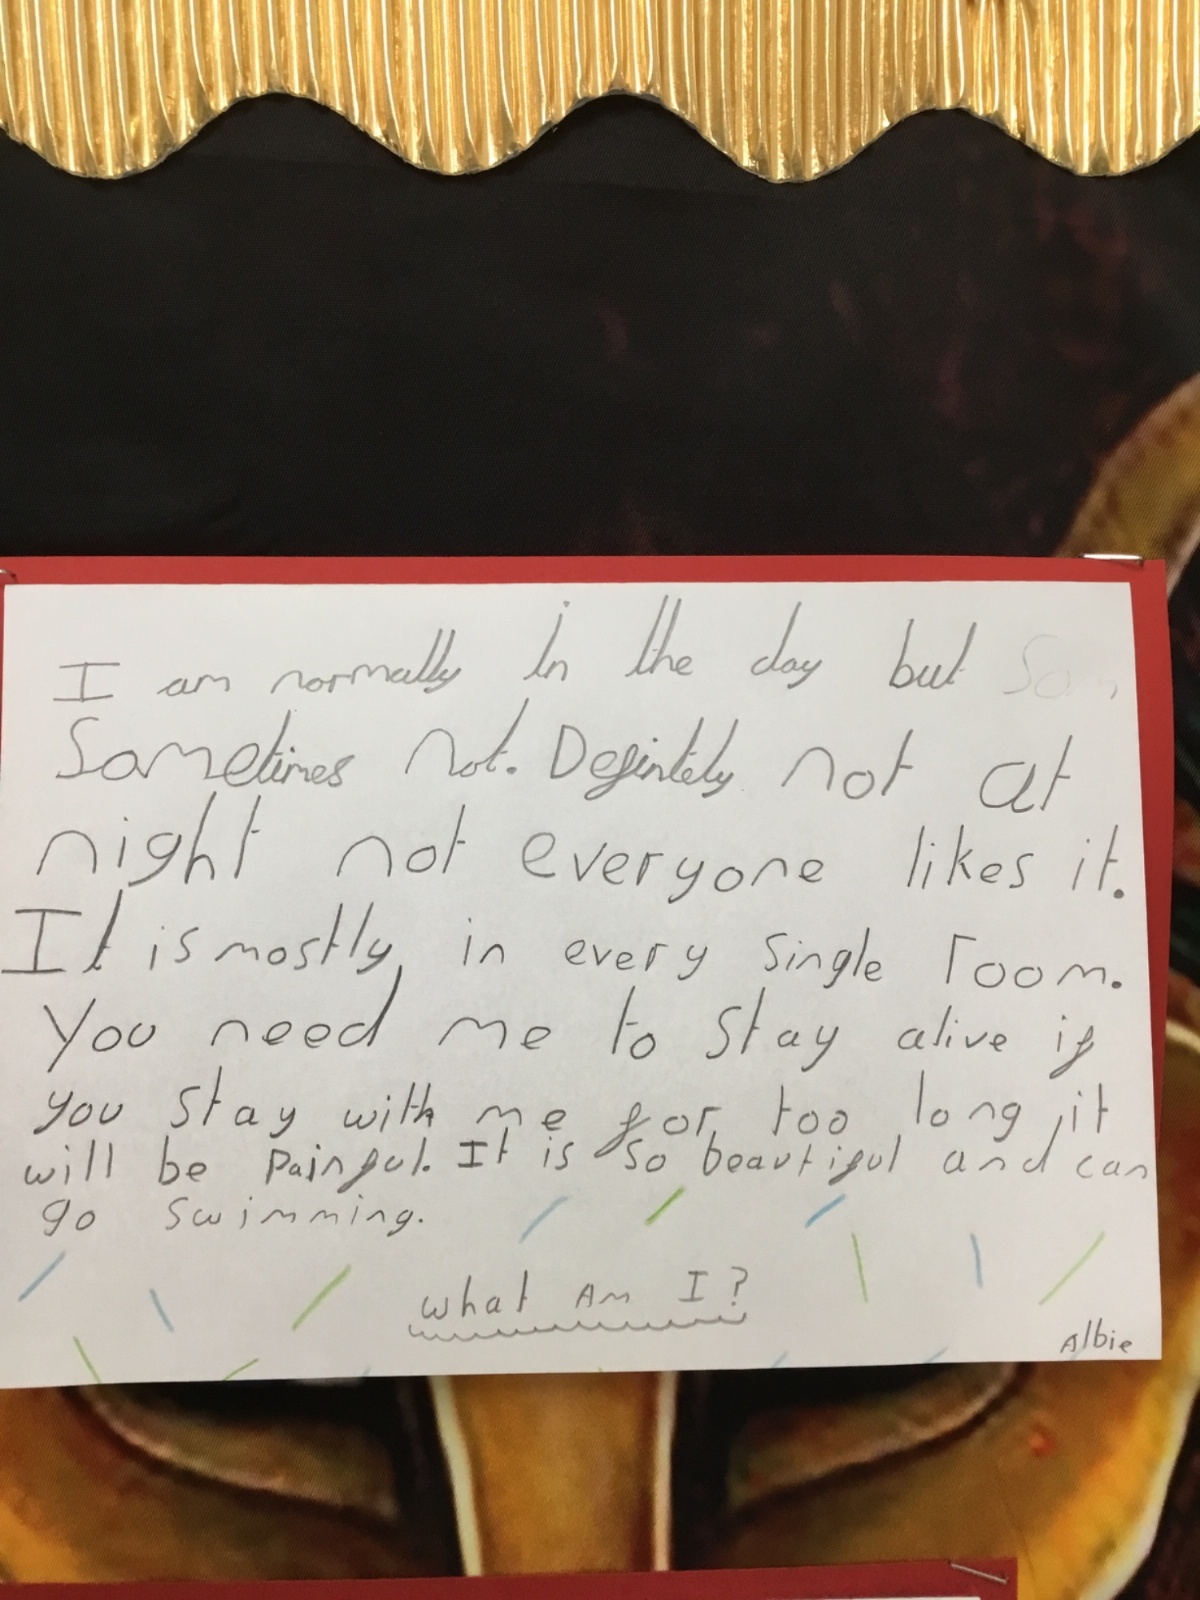 I am normally In the day but So
Sometimes Not. Defintely not at
night not everyone likes it.
It is mostly in every single room.
You need me to stay alive if
you stay with me for too long it
will be painful. It is so beautiful and can
go swimming.
What Am I?
Albie